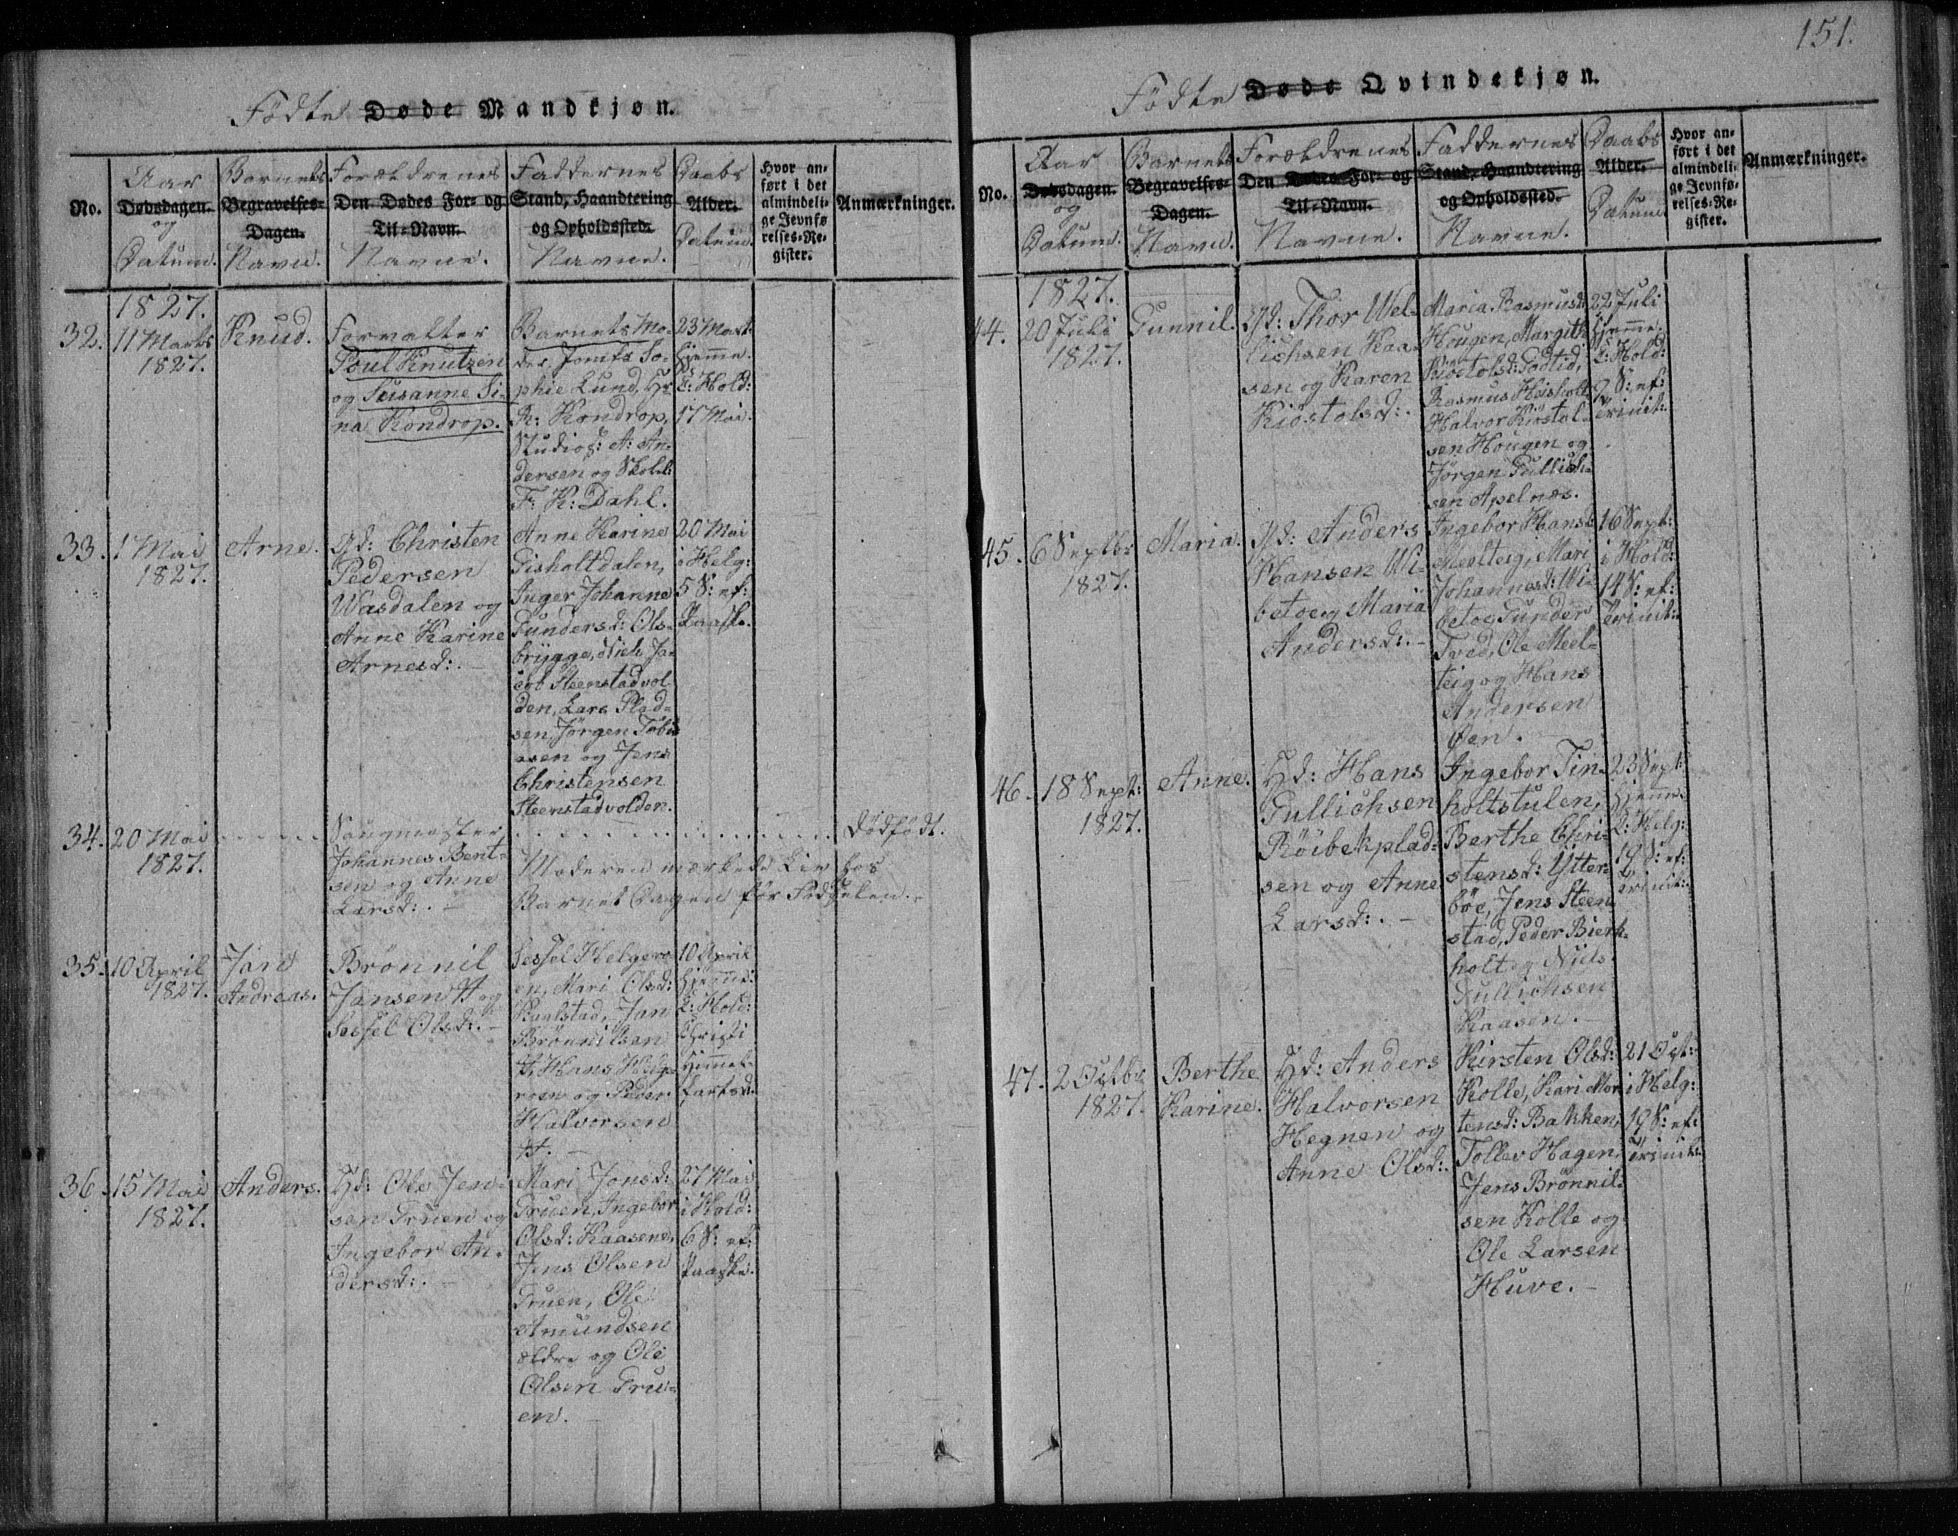 151.
Födte Døde Mandkjøn.
No.
Aar
Dødsdagen.
og
Datum.
Barnets
Begravelses-
Dagen.
Navn.
Forældrenes
Den Dødes For- og
Til-Navn.
Navne.
Faddernes
Stand, Haandtering
og Opholdssted.
Navne.
Daabs
Alder.
Datum.
Hvor an-
ført i det
almindeli-
ge Jevnfø
relses-Re-
gister.
Anmærkninger.
1827.
32.
11 Marts
1827.
Knud.
Forvalter
Poul Knutzen
og Susanne Si-
na Kondrop.
Barnets Mo-
der, Jomfr So-
phie Lund, Hr
K: Kondrop,
Studios: A: An-
dersen og Skolel:
F: K: Dahl.
23 Mart:
hjemme.
C: Hold:
17 Mai.
33.
1 Mai
1827.
Arne.
Gd: Christen
Pedersen
Wasdalen og
Anne Karine
Arnesd:. –
Anne Karine
Gisholtdalen,
Inger Johanne
Gundersd: Ols-
brygge, Niels Ja-
cob Steenstadvol
den, Lars Plad-
sen, Jörgen Tobi
asen og Jens
Christensen
Steenstadvolden.
20 Mai
i Helg:
5 S: ef:
Paaske.
34.
20 Mai
1827.
Saugmester
Johannes Bent-
sen og Anne
Larsd:. –
Dödfödt.
Moderen mærkede Liv hos
Barnet Dagen för Födselen.
35.
10 April
1827.
Jan
Andreas.
Brönnil
Jansen H og
Sessel Olsd:. –
Sessel Helgero
en, Mari Olsd:
Kaalstad, Jan
Brönnilsen
H, Hans Helge-
roen og Peder
Halvorsen
H. –
10 April
hjemme.
C: Hold:
Christi
Himmel-
fartsd:
36.
15 Mai
1827.
Anders.
Hd: Ole Jen-
sen Gruen og
Ingebor An-
dersd:. –
Mari Jonsd:
Gruen, Ingebor
Olsd: Kaasene,
Jens Olsen
Gruen, Ole
Amundsen
ældre og Ole
Olsen Gru-
en. –
27 Mai
i Hold:
6 S: ef:
Paaske.
Födte Døde Qvindekjøn.
No.
Aar
Dødsdagen.
og
Datum.
Barnets
Begravelses-
Dagen.
Navn.
Forældrenes
Den Dødes For- og
Til-Navn.
Navne.
Faddernes
Stand, Haandtering
og Opholdssted.
Navne.
Daabs
Alder.
Datum
Hvor an-
ført i det
almindeli-
ge Jevnfø-
relses-Re-
gister.
Anmærkninger.
1827.
44.
20 Juli
1827.
Gunnil.
Gd: Thor Wel-
lichsen Kaa-
sen og Karen
Kiöstolsd:.
Maria Rasmusd:
Hougen, Margith
Kiöstolsd: Fodtid,
Rasmus Heisholt,
Halvor Kiöstol-
sen Hougen og
Jørgen Gullich-
sen Apelnæs.
22 Juli
hjemme.
C: Hold:
9 S: ef:
Trinit:
45.
6 Septbr
1827.
Maria.
Gd: Anders
Hansen Wi-
betoe og Maria
Andersd:. –
Ingebor Hansd:
Meelteig, Mari
Johannesd: Wi-
betoe, Gunder
Tved, Ole Meel-
teig og Hans
Andersen
Öen. –
16 Sept:
i Hold:
14 S: ef:
Trinit:
46.
18 Sept:
1827.
Anne.
Hd: Hans
Gullichsen
Röibekplad-
sen og Anne
Larsd:. –
Ingebor Tin-
holtstulen,
Berthe Chri-
stensd: Ytter-
böe, Jens Steen
stad, Peder Bierk-
holt og Niels
Gullichsen
Kaasen. –
23 Sept:
hjemme.
C: Helg:
19 S: ef:
Trinit:
47.
2 Octbr
1827.
Berthe
Karine.
Hd: Anders
Halvorsen
Hegnen og
Anne Olsd:.
Kirsten Olsd:
Kolle, Kari Mor
tensd: Bakken,
Tollev Hagen,
Jens Brönnil-
sen Kolle og
Ole Larsen
Huve. –
21 Oct:
i Helg:
19 S: ef:
Trinit: